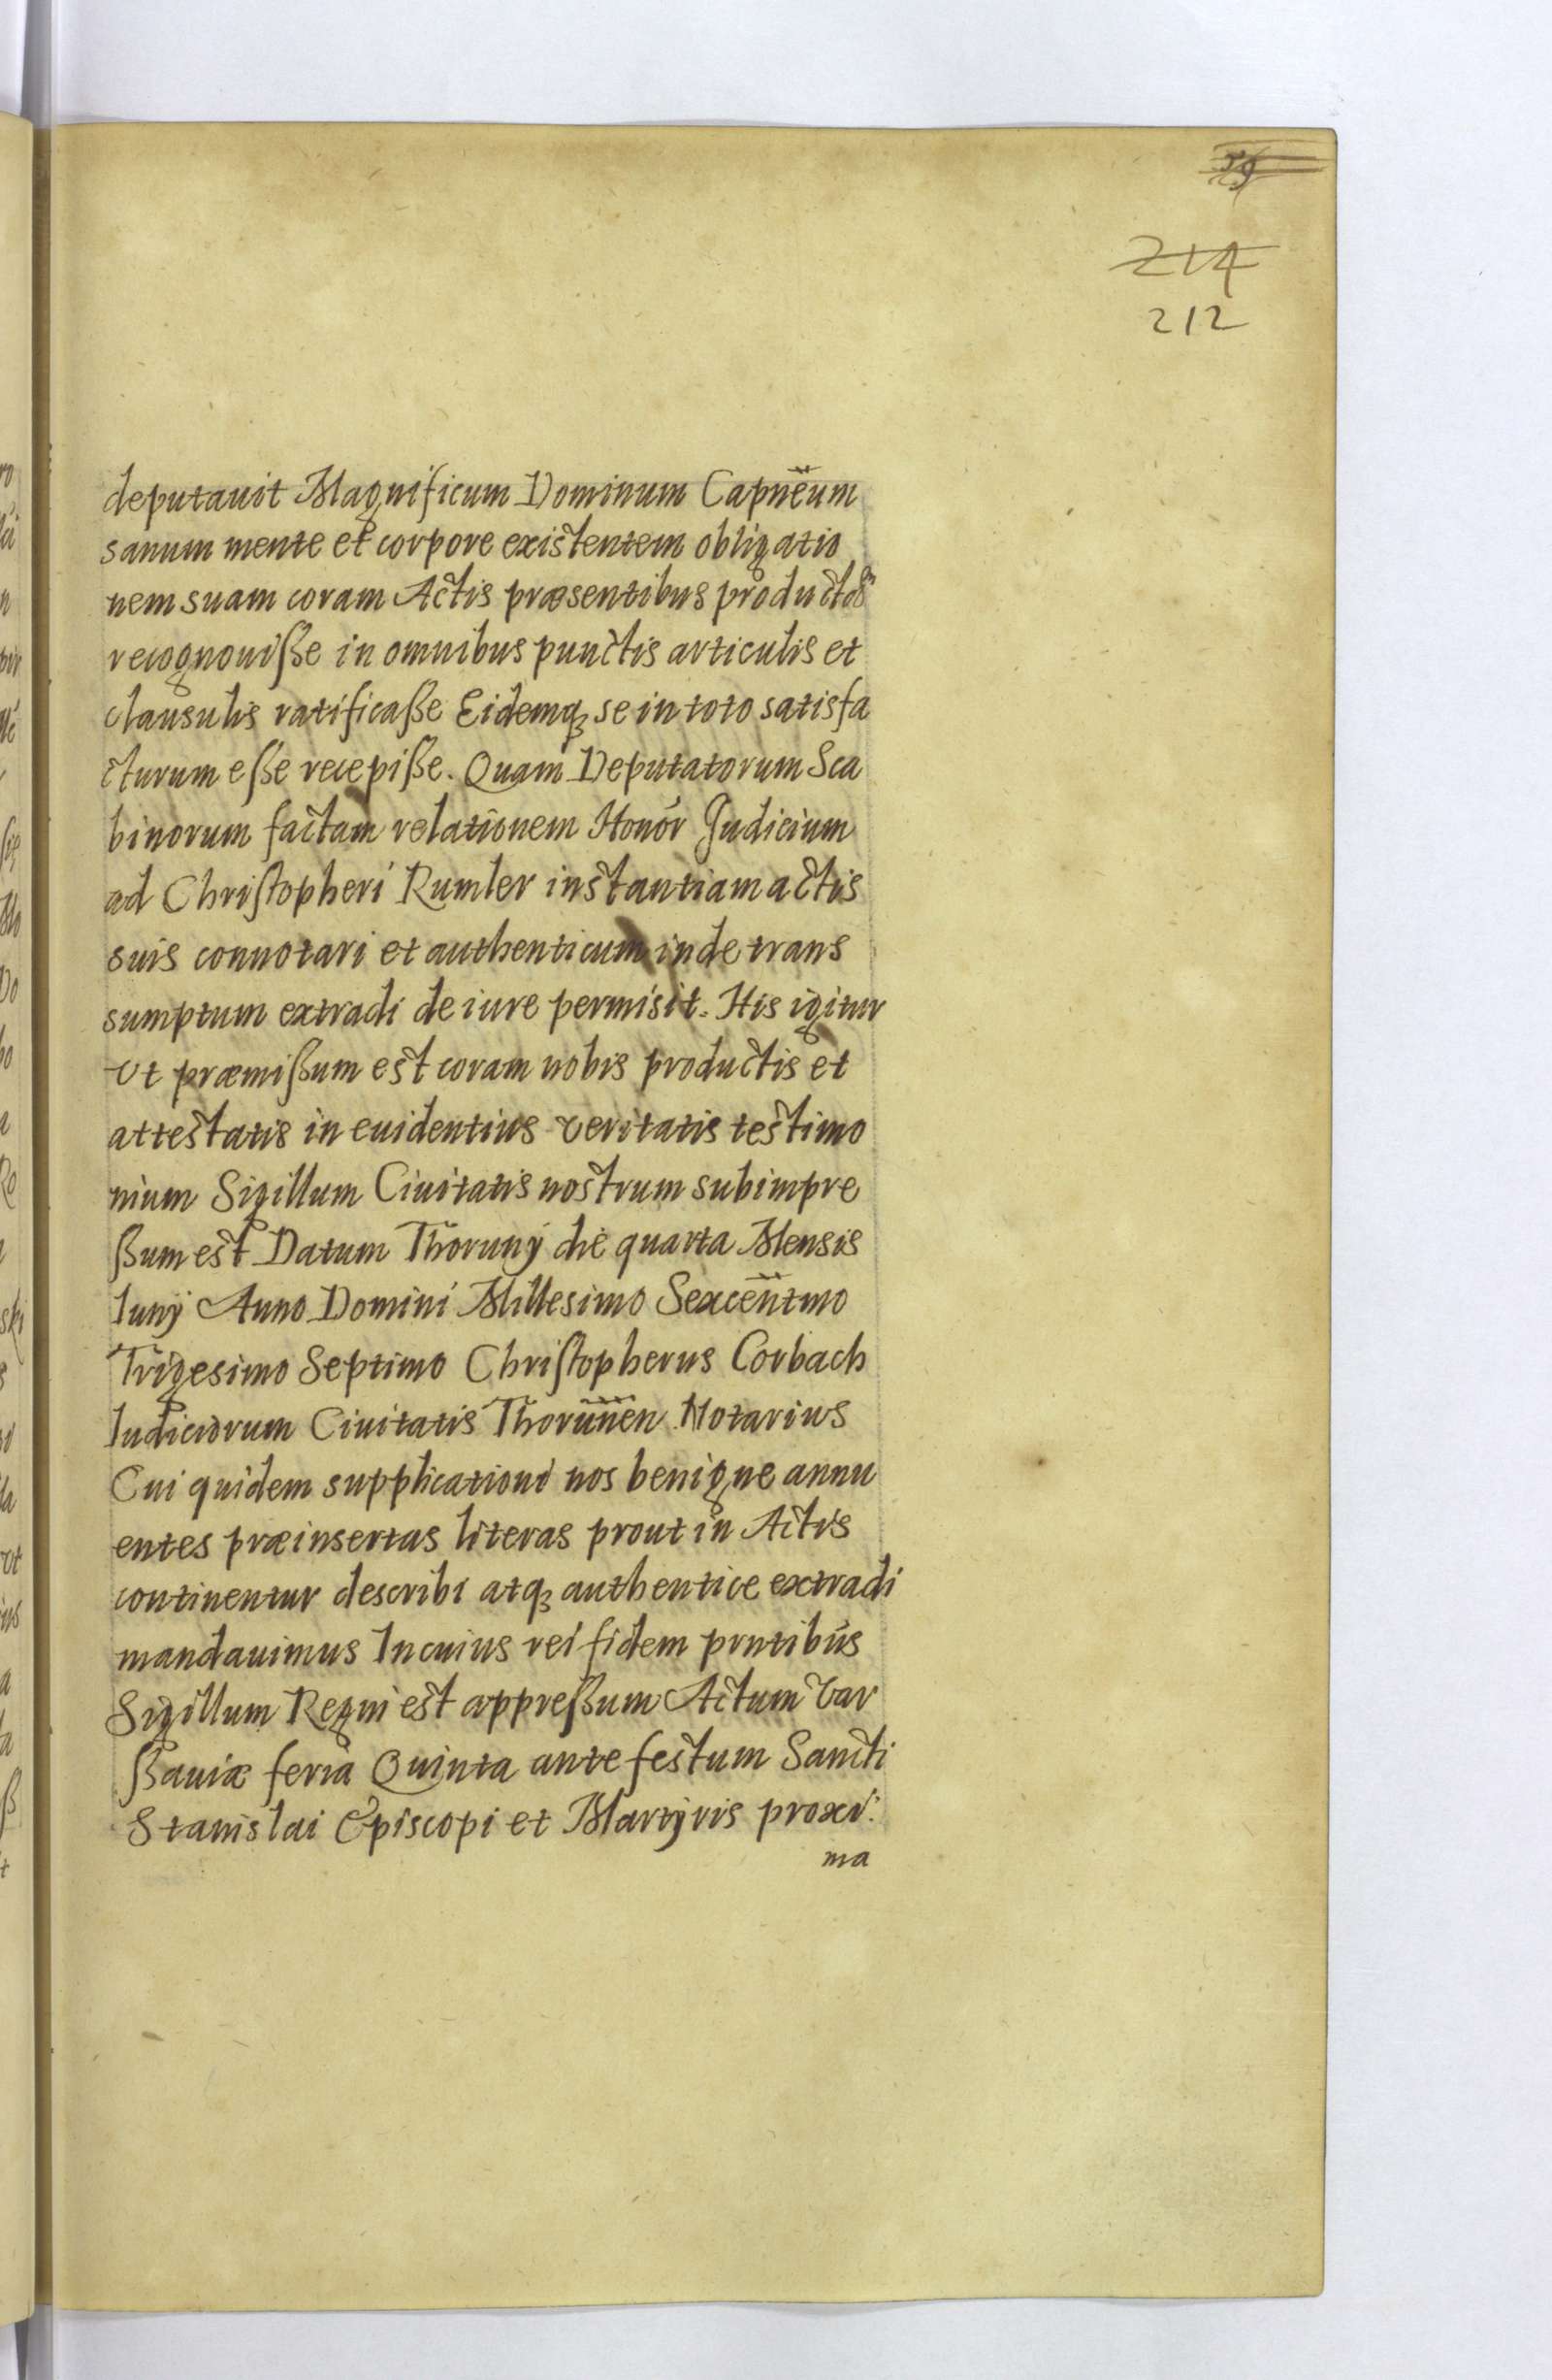 59
214
212
deputauit Magnificum Dominum Capn̄eum
sanum mente et corpore existentem obligatio
nem suam coram Actis præsentibus
recognouiße in omnibus punctis articulis et
clausulis ratificaße Eidemq₃ se in toto satisfa
cturum eße recepiße. Quam Deputatorum Sca
binorum factam relationem Honor Judicium
ad Christopheri Rumler instantiam actis
suis connotari et authenticum inde trans
sumptum extradi de iure permisit. His igitur
vt præmißum est coram nobis productis et
attestatis in euidentius veritatis testimo
nium Sigillum Ciuitatis nostrum subimpre
ßum est Datum Thoruny die quarta Mensis
Iuny Anno Domini Millesimo Sexcen̄tmo
Trigesimo Septimo Christopherus Corbach
Iudiciorum Ciuitatis Thorūnen Notarius
Cui quidem supplicationi nos benigne annu
entes præinsertas literas prout in Actis
continentur describi atq₃ authentice extradi
mandauimus In cuius rei fidem pntibus
Sigillum Regni est appreßum Actum Var
ßauiæ feria Quinta ante festum Sancti
Stanislai Episcopi et Martyris proxi:
ma